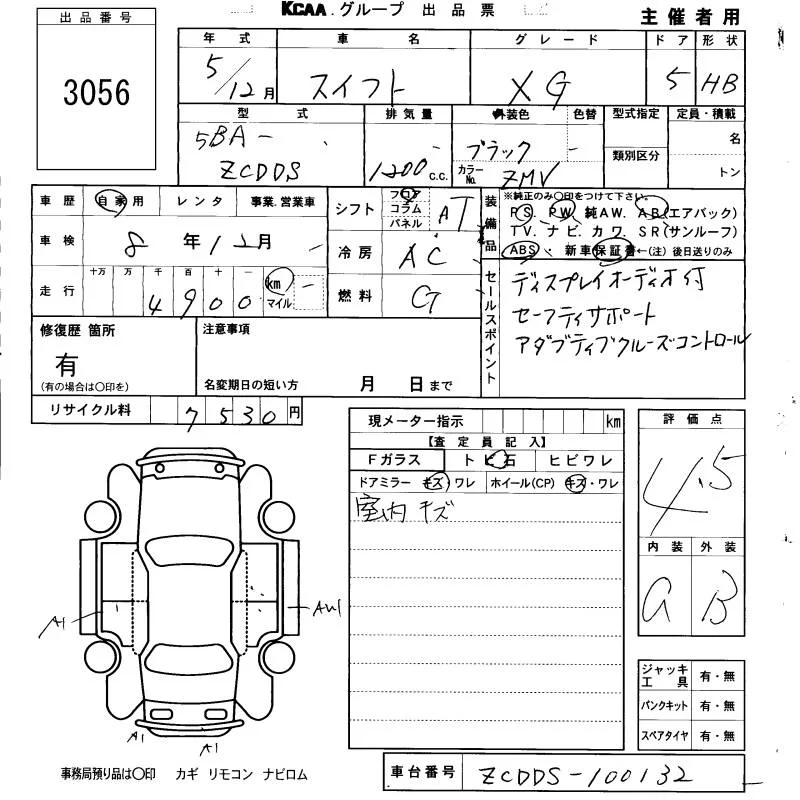 KCAA.グループ 出品票
主催者用
出品番号
3056
年式 車名 グレード ドア 形状
5/12月 スイフト XG 5 HB
型式 排気量 外装色 色替 型式指定 定員・積載
5BA- ZCDDS 1200c.c. ブラック -
カラーNo. ZMV 類別区分 名
トン
車歴 自家用 レンタ 事業.営業車
車検 8年12月
走行 十万 万 千 百 十 一 km マイル
4900
シフト フロア コラム パネル AT
冷房 AC
燃料 G
装備品
※純正のみ○印をつけて下さい。
PS. PW. 純AW. AB(エアバック)
TV. ナビ. カワ. SR(サンルーフ)
ABS・新車保証書←(注)後日送りのみ
セールスポイント
ディスプレイオーディオ付
セーフティサポート
アダプティブクルーズコントロール
修復歴 箇所
有
(有の場合は○印を)
注意事項
名変期日の短い方 月 日まで
リサイクル料 7530円
現メーター指示 km
【査定員記入】
Fガラス トビ石 ヒビワレ
ドアミラー キズ・ワレ ホイール(CP) キズ・ワレ
室内キズ
評価点
4.5
内装 外装
a B
A1 AW1
A1 A1
ジャッキ工具 有・無
パンクキット 有・無
スペアタイヤ 有・無
事務局預り品は○印 カギ リモコン ナビロム
車台番号 ZCDDS-100132